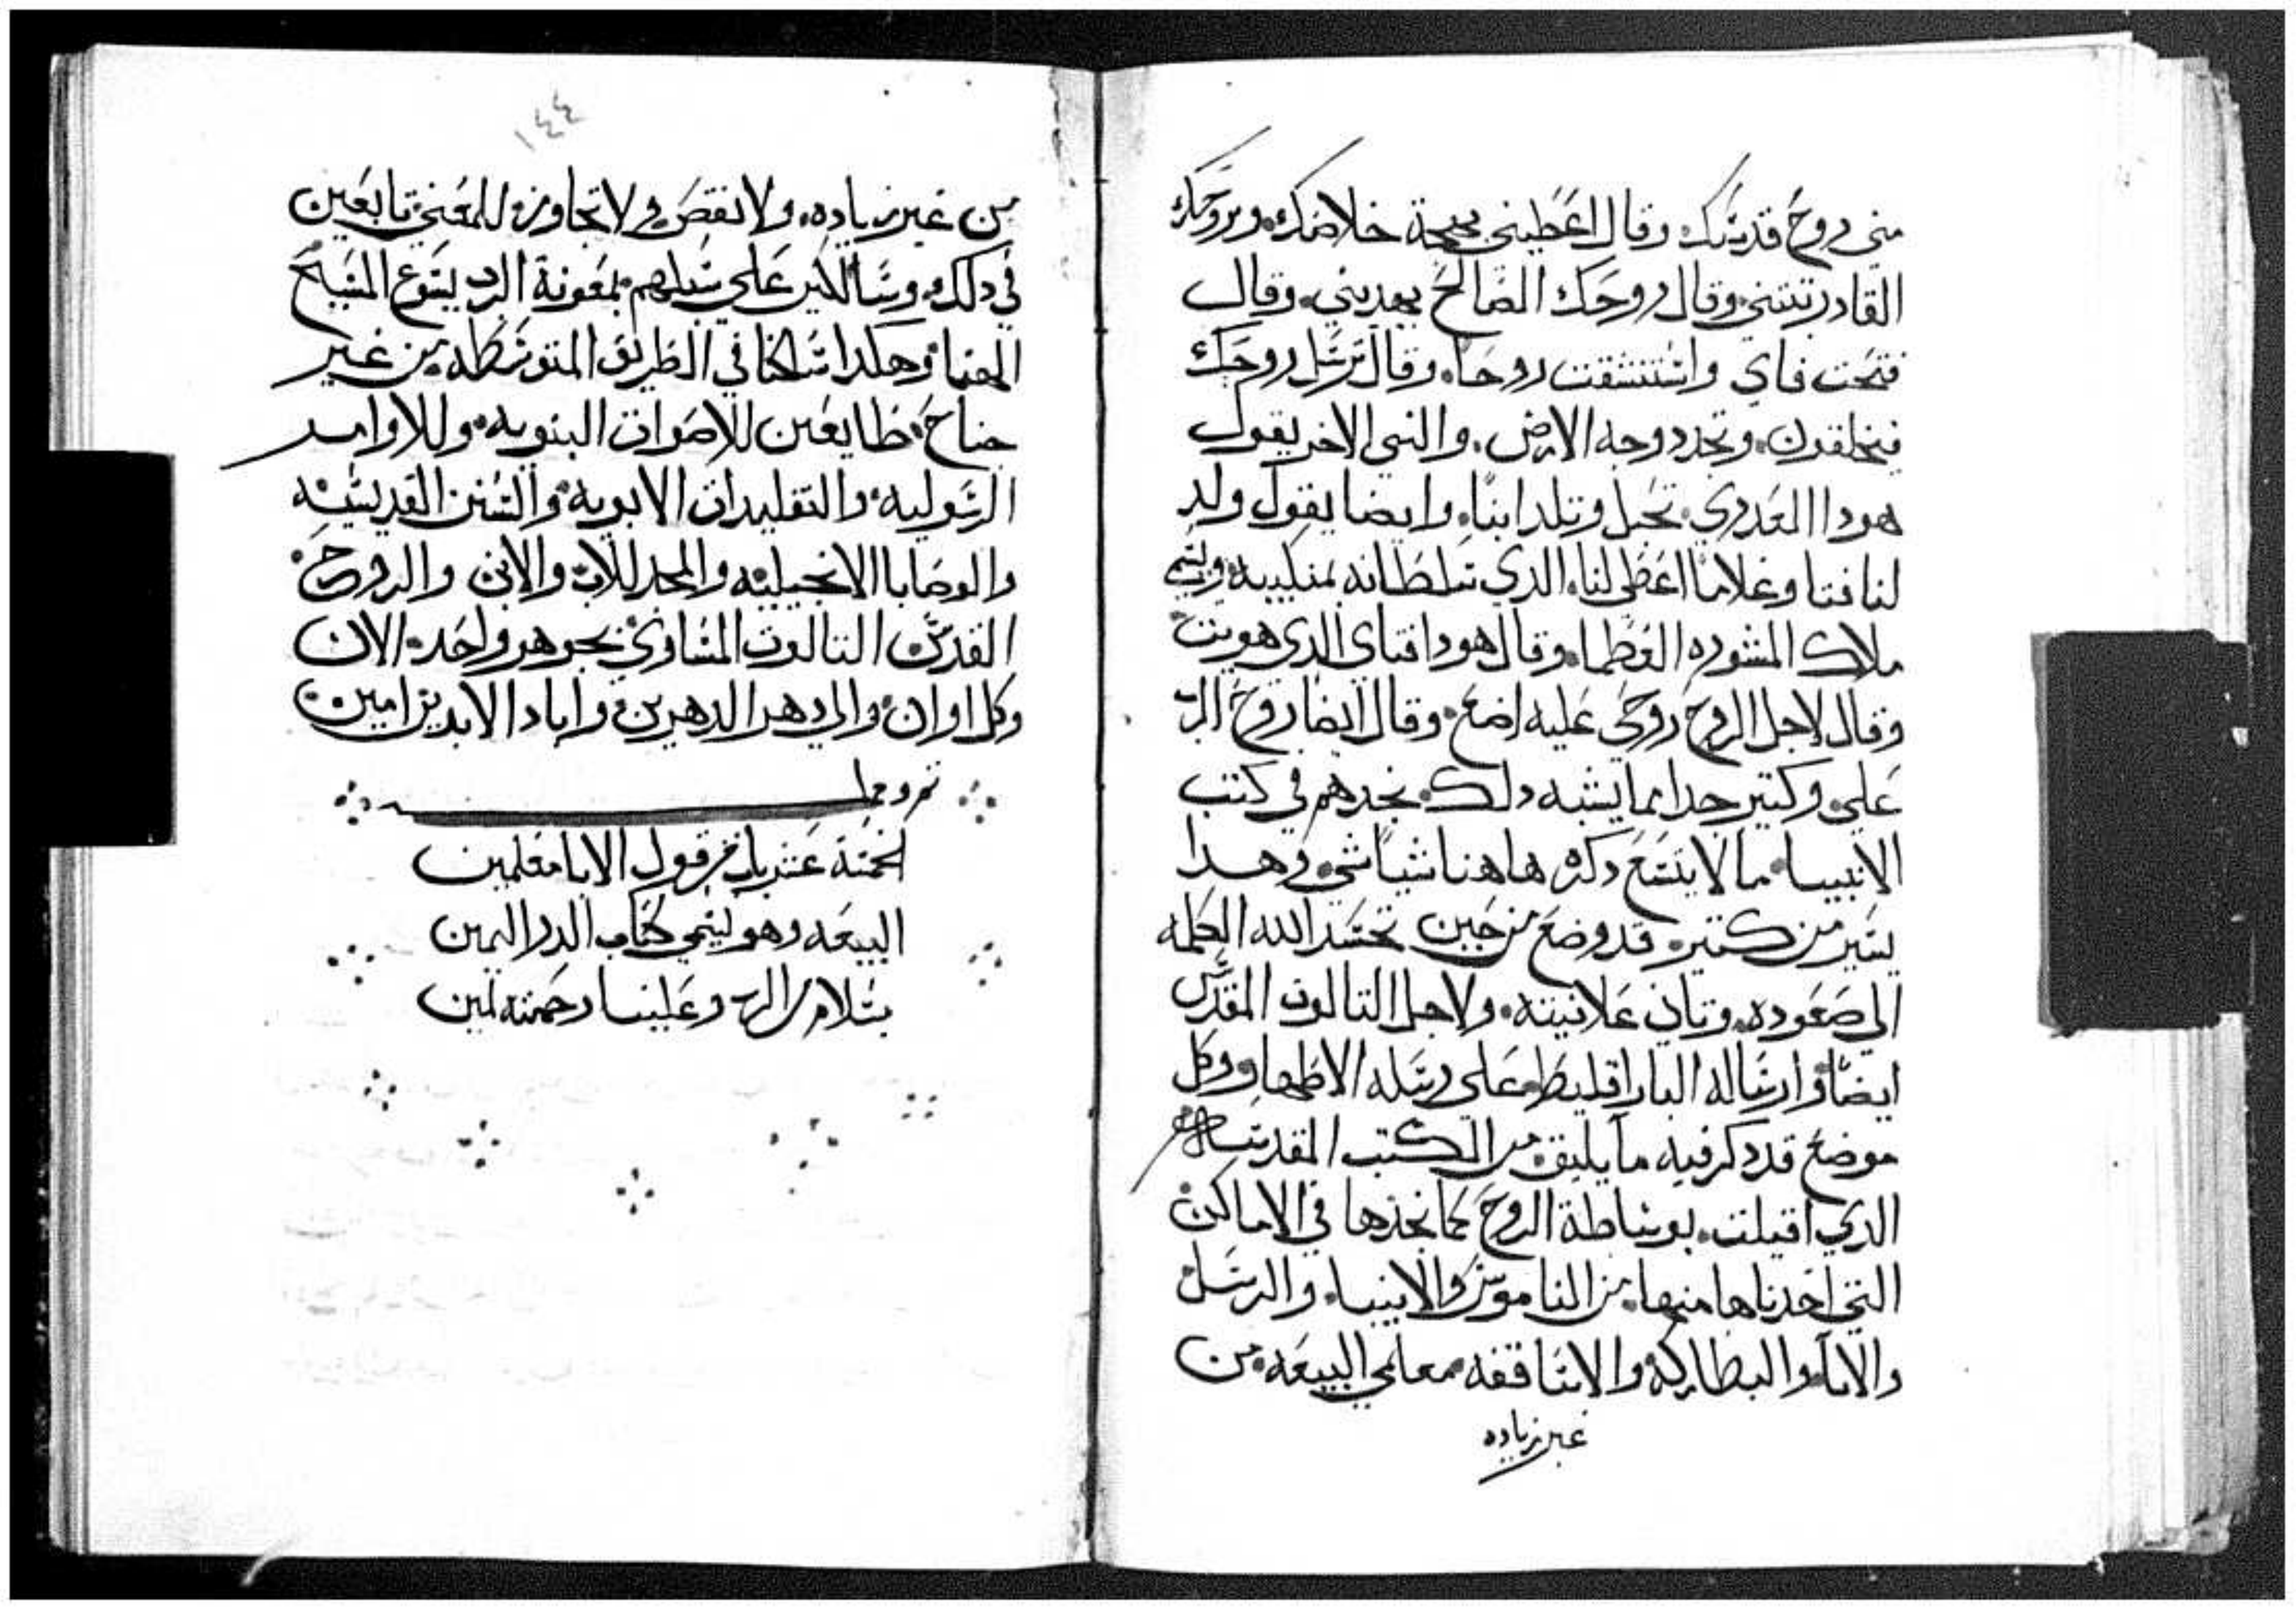 مني روح قدسك. وقال اعطيني بهجة خلاصك. وبروحك
القادر تبتني. وقال روحك الصالح يهديني. وقال
فتحت فاي واستنشقت روحا. وقال ترسل روحك
فيخلقون. وتجدد وجه الارض. والنبي الاخر يقول
هودا العدري تحبل وتلد ابنا. وايضا يقول ولد
لنا فتا وغلاما اعطي لنا. الدي سلطانه بمنكبيه. ويسمي
ملاك المشوره العظما. وقال هودا فتاي الدي هويت
وقال لاجل الروح روحي عليه اضع. وقال ايضا روح الرب
علي. وكتير جدا مما يشبه دلك. نجدهم في كتب
الانبيا. ما لا يتسع دكره هاهنا شيا شي. وهدا
يسير من كتير. قد وضع من حين تجسد الله الكلمه
الي صعوده. وتاني علانيته. ولاجل التالوت المقدس
ايضا. وارساله البارقليط. علي رسله الاطهار. وكل
موضع قد دكر فيه ما يليق. من الكتب المقدسه
الدي اقيلت. بوساطة الروح كما نجدها في الاماكن
التي اخدناها منها. من الناموس والانبيا. والرسل
والابا. والبطاركه. والاساقفه. معلمي البيعه. من
غير زياده
١٤٤
من غير زياده. ولا نقص. ولا تجاوز. للمعني. تابعين
في دلك. وسالكين علي سبلهم. بمعونة الرب يسوع المسيح
الهنا. وهكدا سلكنا في الطريق المتوسطه من غير
جناح. طايعين للاصوات النبويه. وللاوامر
الرسوليه. والتقليدات الابويه. والسنن القديسيه
والوصايا الانجيليه. والمجد للاب والابن والروح
القدس. التالوت المساوي بجوهر واحد. الان
وكل اوان. والي دهر الداهرين. واباد الابدين امين
تم وكمل
لخمسة عشر باب من قول الابا معلمين
البيعه وهو ليسمي كتاب الدر التمين
بسلام من الرب وعلينا رحمته امين